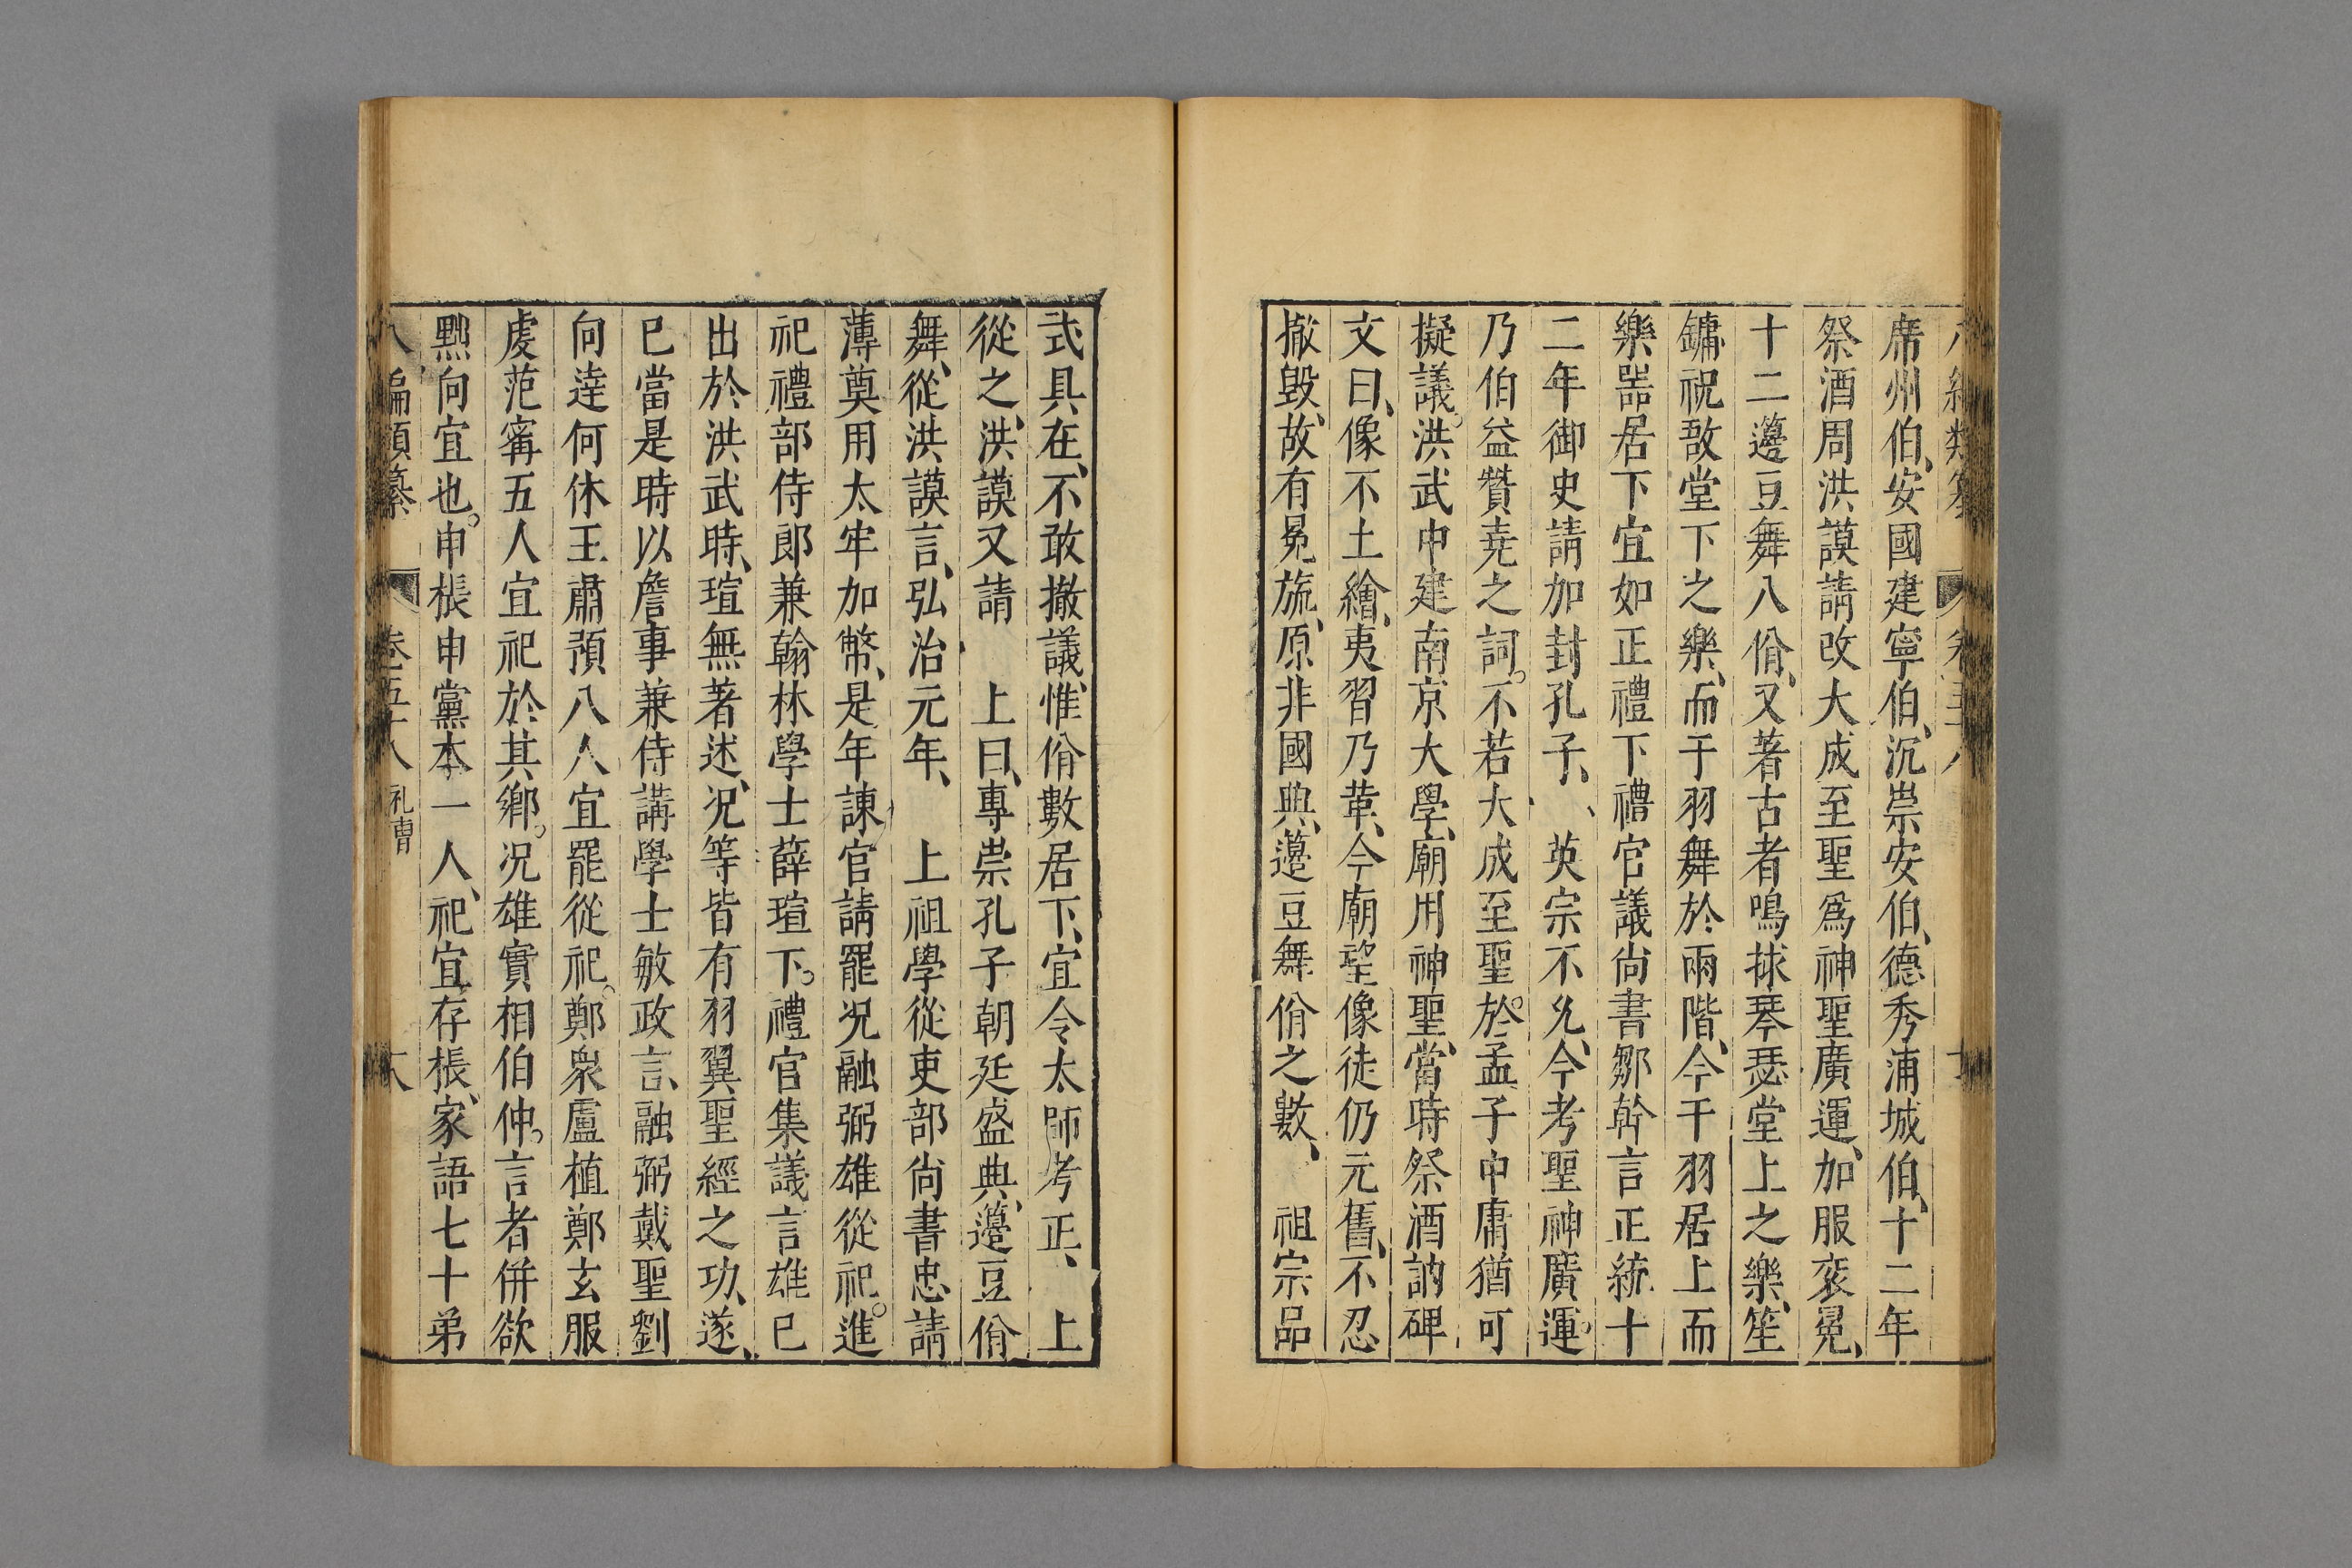 席州伯、安國建寧伯、沉崇安伯、德秀浦城伯、十二年
祭酒周洪謨請改大成至聖爲神聖廣運、加服衮冕、
十二籩豆舞八佾、又著古者鳴球琴瑟堂上之樂、笙
鏞祝敔堂下之樂、而于羽舞於兩階、今干羽居上而
樂噐居下宜如正禮下禮官議尚書鄒幹言正統十
二年御史請加封孔子、英宗不允、今考聖神廣運。
乃伯益贊堯之詞。不若大成至聖。於孟子中庸猶可
擬議。洪武中建南京大學、廟用神聖、當時祭酒訥碑
文曰、像不土繪、夷習乃革、今廟塑像徒仍元舊、不忍
撤毀、故有冕旒、原非國典、籩豆舞佾之數、祖宗品
式具在、不敢撤議、惟佾數居下、宜令太師考正、上
從之、洪謨又請上曰、專崇孔子朝廷盛典、籩豆佾
舞、從洪謨言、弘治元年、上祖學從吏部尚書忠請
薄奠用太牢加幣、是年諌官請罷况融弼雄從祀。進
祀禮部侍郎兼翰林學士薛瑄下。禮官集議言雄已
出於洪武時、瑄無著述、况等皆有羽翼聖經之功、遂、
已當是時以詹事兼侍講學士敏政言、融弼戴聖劉
向逹何休王肅預八人宜罷從祀。鄭衆盧植鄭玄服
虔范甯五人宜祀於其鄉。况雄實相伯仲。言者併欲
黜向宜也。申棖申黨本一人、祀宜存棖、家語七十弟
八編類纂 卷五十八 礼曹 十八